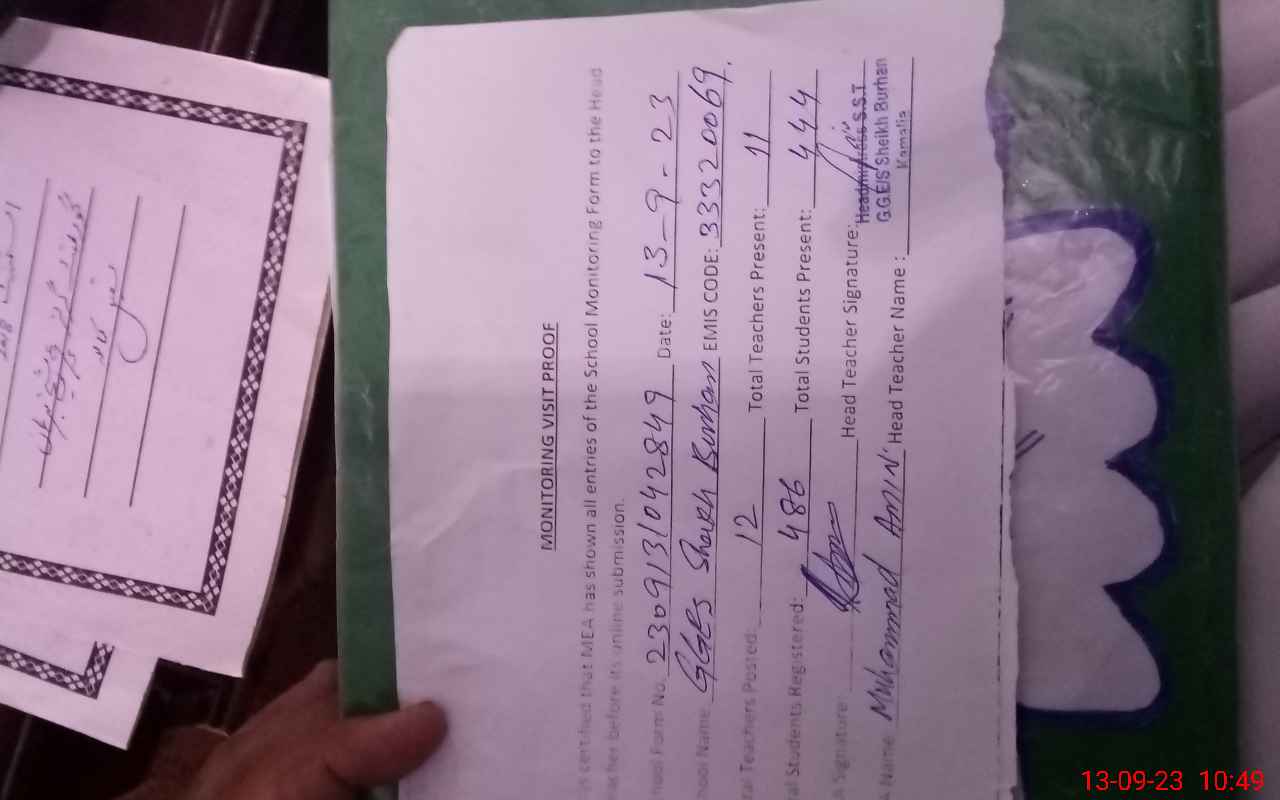 MONITORING VISIT PROOF
certified that MEA has shown all entries of the School Monitoring Form to the Head
before its online submission.
Form No. 2309131042849 Date: 13-9-23
Name GGES Sheikh Burhan EMIS CODE: 33320069.
Teachers Posted: 12 Total Teachers Present: 11
Students Registered: 486 Total Students Present: 444
Signature: Head Teacher Signature:
Headmistress S.S.T
G.G.E/S Sheikh Burhan
Kamalia
Name Muhammad AMIN Head Teacher Name :
13-09-23 10:49